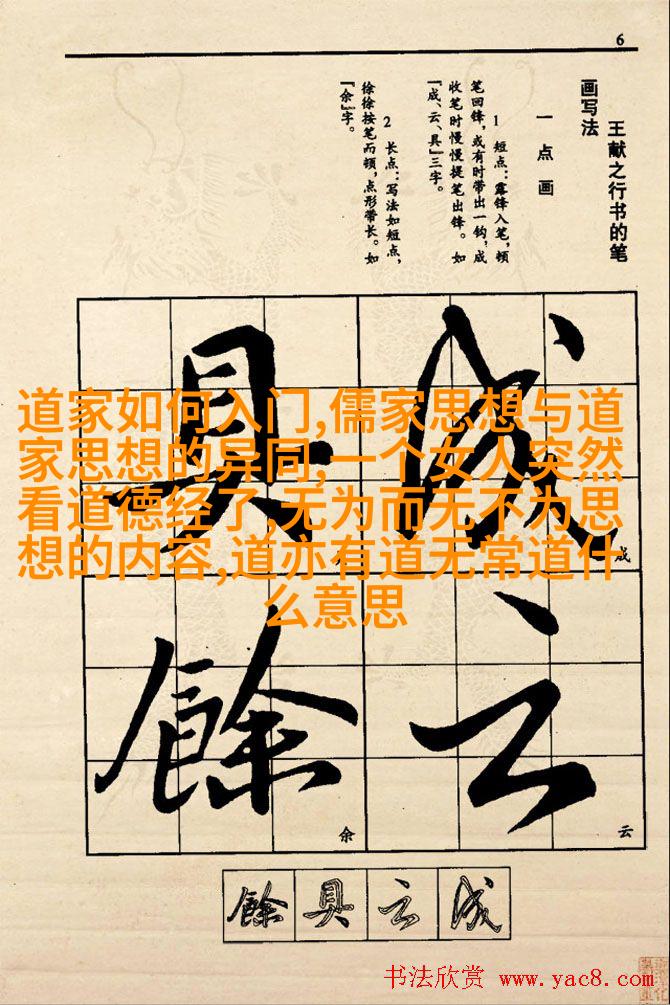 6
王献之行书的笔
画写法
一 点 画
1 短点:露锋入笔,顿
笔回锋,或有时带出一钩,成
收笔时慢慢提笔出锋。如
『成、云、具』三字。
2 长点:写法如短点,
徐徐按笔而顿,点形带长。如
『余』字。
道家如何入门,儒家思想与道
家思想的异同,一个女人突然
看道德经了,无为而无不为思
想的内容,道亦有道无常道什
么意思
成
成
云
云
具
餘
余
成 云 具 餘
书法欣赏 www.yac8.com